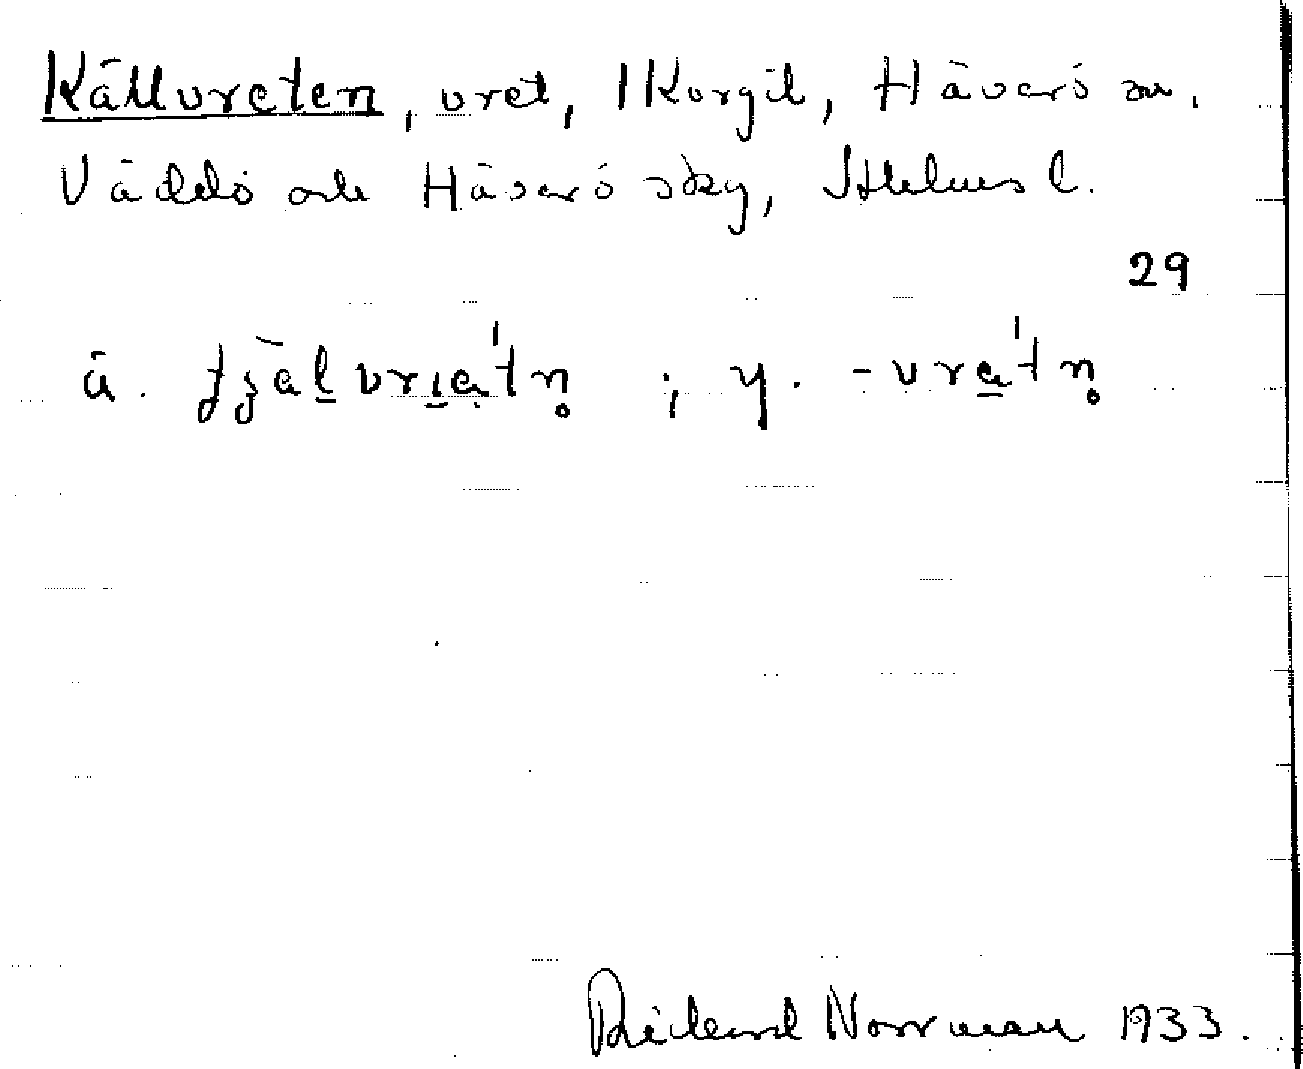 Källvreten, vret, 1 Korgil, Häverö sn.
Väddö och Häverö skg, Sthlms l.
29
ä. ; y.
Rickard Norrman 1933.